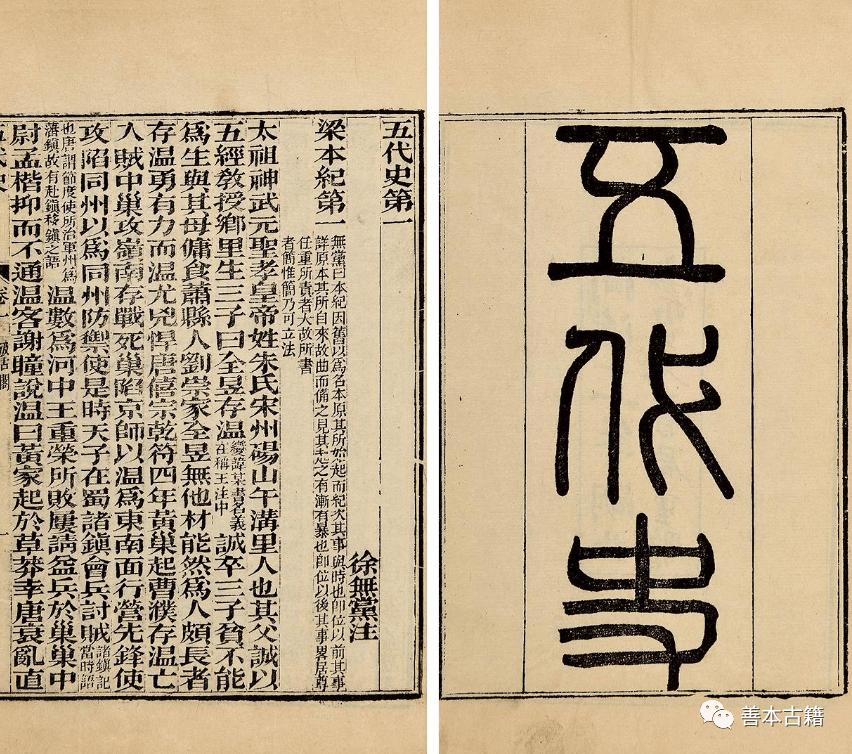 五代史
五代史第一
徐無黨注
梁本紀第一 無黨曰本紀因舊以爲名本原其所始起而紀次其事與時也即位以前其事
詳原本其所自來故曲而備之見其起之有漸有暴也即位以後其事畧居尊
任重所責者大故所書
者簡惟簡乃可立法
太祖神武元聖孝皇帝姓朱氏宋州碭山午溝里人也其父誠以
五經教授鄉里生三子曰全昱存溫變諱某書名義在稱王注中誠卒三子貧不能
爲生與其母傭食蕭縣人劉崇家全昱無他材能然爲人頗長者
存溫勇有力而溫尤兇悍唐僖宗乾符四年黃巢起曹濮存溫亡
入賊中巢攻嶺南存戰死巢陷京師以溫爲東南面行營先鋒使
攻陷同州以爲同州防禦使是時天子在蜀諸鎮會兵討賊諸鎮記當時語
也唐謂節度使所治軍州爲藩鎮故有赴鎮移鎮之語溫數爲河中王重榮所敗屢請益兵於巢巢中
尉孟楷抑而不通溫客謝瞳說溫曰黃家起於草莽幸唐衰亂直
五代史
善本古籍